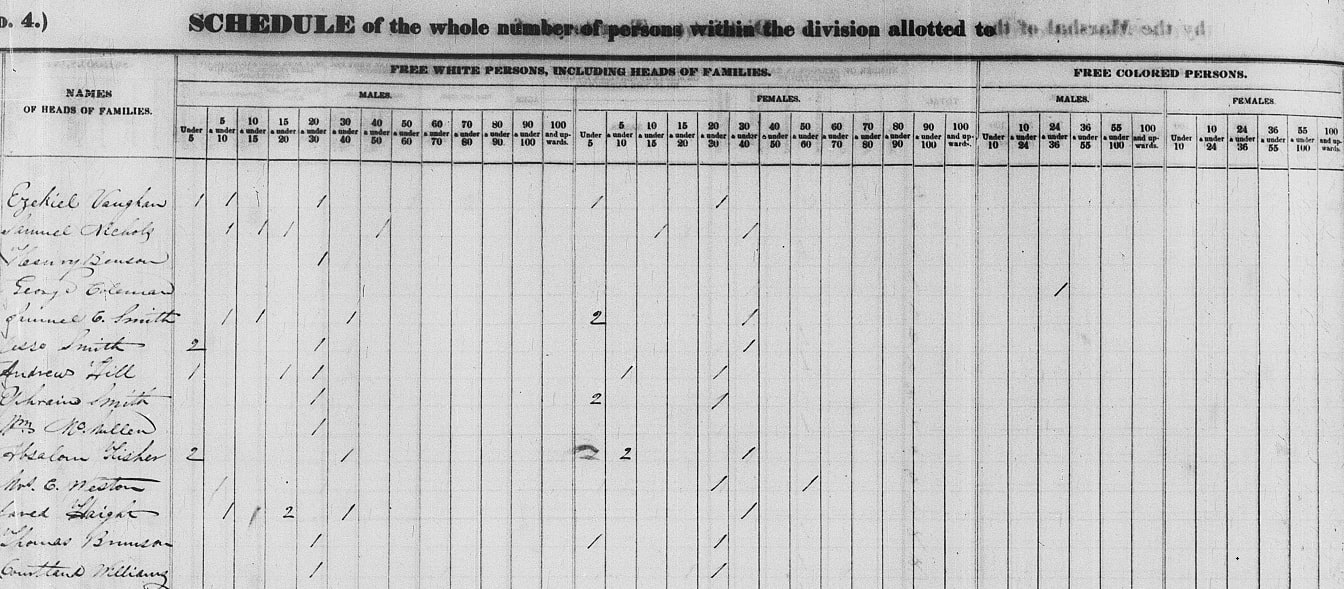 o. 4.)
SCHEDULE of the whole number of persons within the division allotted to
FREE WHITE PERSONS, INCLUDING HEADS OF FAMILIES.
FREE COLORED PERSONS.
NAMES
OF HEADS OF FAMILIES.
MALES. FEMALES. MALES. FEMALES.
Under 5 5 & under 10 10 & under 15 15 & under 20 20 & under 30 30 & under 40 40 & under 50 50 & under 60 60 & under 70 70 & under 80 80 & under 90 90 & under 100 100 and upwards. Under 5 5 & under 10 10 & under 15 15 & under 20 20 & under 30 30 & under 40 40 & under 50 50 & under 60 60 & under 70 70 & under 80 80 & under 90 90 & under 100 100 and upwards. Under 10 10 & under 24 24 & under 36 36 & under 55 55 & under 100 100 and upwards. Under 10 10 & under 24 24 & under 36 36 & under 55 55 & under 100 100 and upwards.
Ezekiel Vaughan 1 1 1 1 1
Samuel Nichols 1 1 1 1 1 1
Benson 1
George Coleman 1
C. Smith 1 1 1 2 1
Jesse Smith 2 1 1
Andrew Hill 1 1 1 1 1
Ephraim Smith 1 2 1
Wm McMillen 1
Absalom Fisher 2 1 2 1
Mrs. C. Weston 1 1 1
Jared Haight 1 1 2 1 1
Thomas Brunson 1 1 1
Courtland Williams 1 1